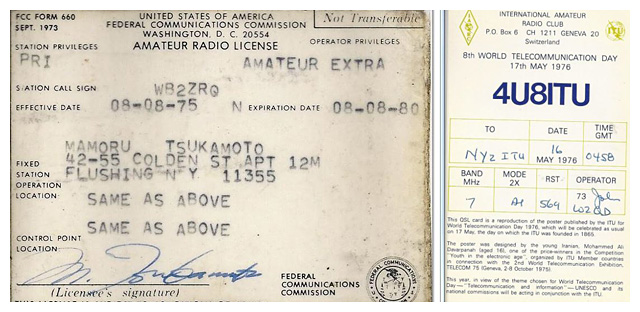 FCC FORM 660
SEPT. 1973
UNITED STATES OF AMERICA
FEDERAL COMMUNICATIONS COMMISSION
WASHINGTON, D. C. 20554
AMATEUR RADIO LICENSE
Not Transferable
STATION PRIVILEGES
OPERATOR PRIVILEGES
PRI
AMATEUR EXTRA
STATION CALL SIGN
WB2ZRQ
EFFECTIVE DATE 08-08-75 N EXPIRATION DATE 08-08-80
MAMORU TSUKAMOTO
42-55 COLDEN ST APT 12M
FLUSHING N Y 11355
FIXED
STATION
OPERATION
LOCATION:
SAME AS ABOVE
SAME AS ABOVE
CONTROL POINT
LOCATION:
(Licensee's signature)
FEDERAL
COMMUNICATIONS
COMMISSION
INTERNATIONAL AMATEUR
RADIO CLUB
P.O. Box 6 CH 1211 GENEVA 20
Switzerland
ITU
8th WORLD TELECOMMUNICATION DAY
17th MAY 1976
4U8ITU
TO DATE TIME GMT
NY2ITU 16 MAY 1976 0458
BAND MHz MODE 2X RST OPERATOR
7 A1 569 73 John
This QSL card is a reproduction of the poster published by the ITU for
World Telecommunication Day 1976, which will be celebrated as usual
on 17 May, the day on which the ITU was founded in 1865.
The poster was designed by the young Iranian, Mohammed Ali
Dawarpanah (aged 16), one of the price-winners in the Competition
"Youth in the electronic age", organized by ITU Member countries
in connection with the 2nd World Telecommunication Exhibition,
TELECOM 75 (Geneva, 2-8 October 1975).
This year, in view of the theme chosen for World Telecommunication
Day — "Telecommunication and information" — UNESCO and its
national commissions will be acting in conjunction with the ITU.